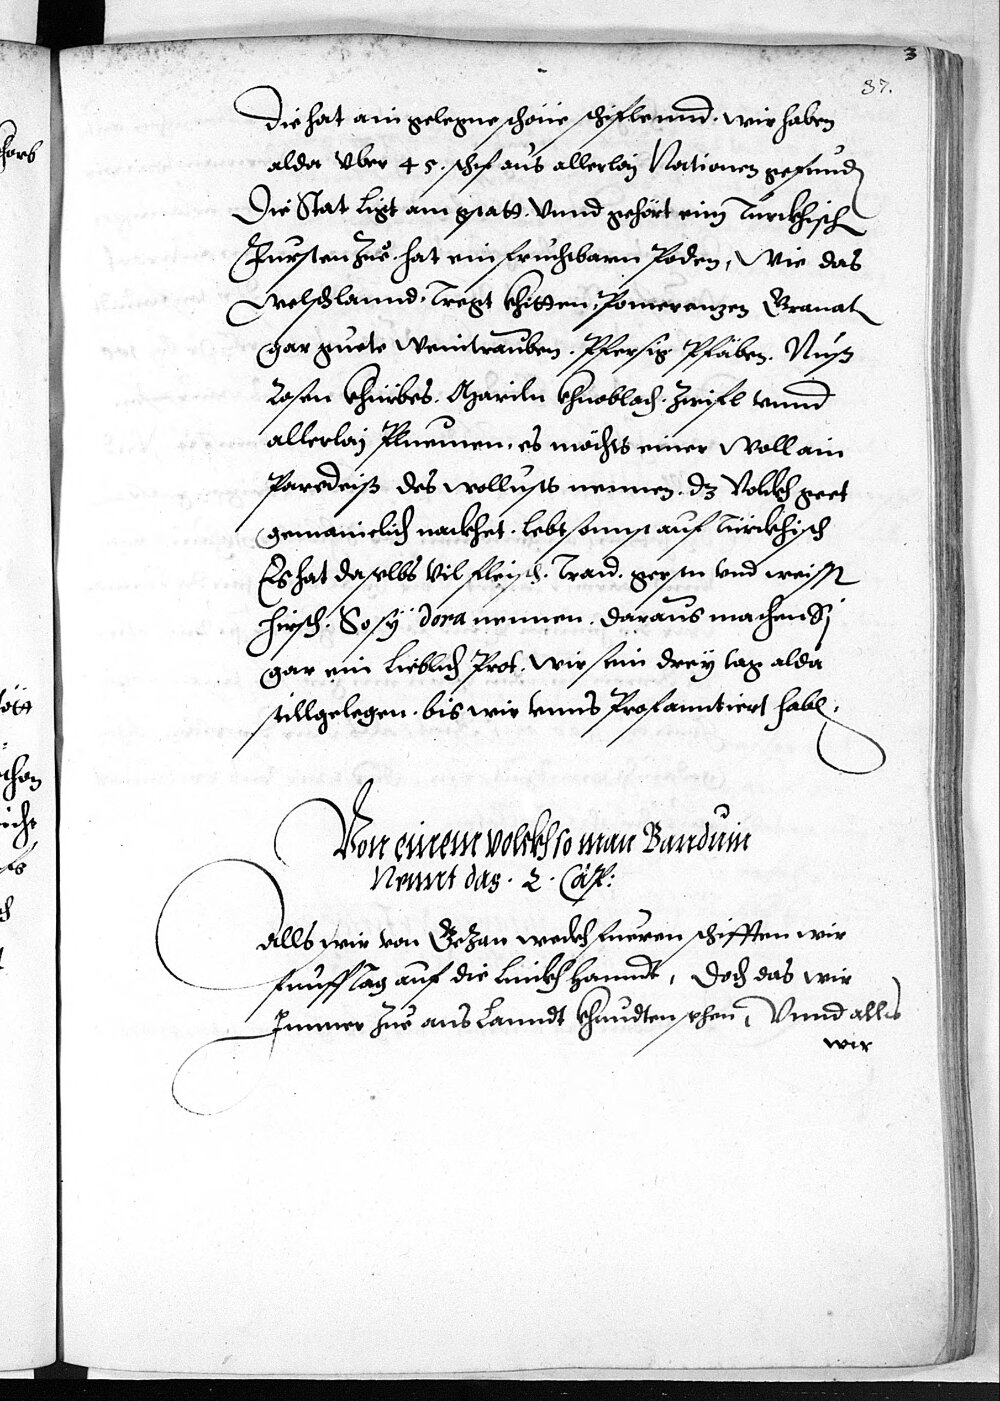 3
37.
Die hat ain gelegne schöne schiflennd. wir haben
alda vber 45. schif aus allerlaj Nationen gefund
Die Stat ligt am gstatt. Vnnd gehört eim Türckhisch
Fürsten Zue. hat ein fruchtbarn Poden, Wie das
welschlannd. Tregt khitten, Pomeranzen Granat
gar guete Weintrauben. Pfersig Pfäben. Nuß
Rosen khürbes. Mariln khnoblach. Zwifl vnnd
allerlaj Pluemen. es möchts einer Woll ain
Paredeiß des wollusts nennen. dz Volckh geet
gemainclich nackhet. lebt sonnst auf Türckhisch
Es hat daselbs Vil fleisch. Traid. gersten vnd weissn
hirsch. So sÿ dora nennen. daraus machen Sj
gar ein lieblich Prot. wir sein dreÿ tag alda
stillgelegen. bis wir vnns Profanntiert habn.
Von einem volckh so man Banduin
Nennt das. 2. Cap:
Alls wir von Gezan weckh fueren schifften wir
funff Tag auf die linckh hanndt, Doch das wir
Immer Zue ans Lanndt khundten sehen, Vnnd alls
wir